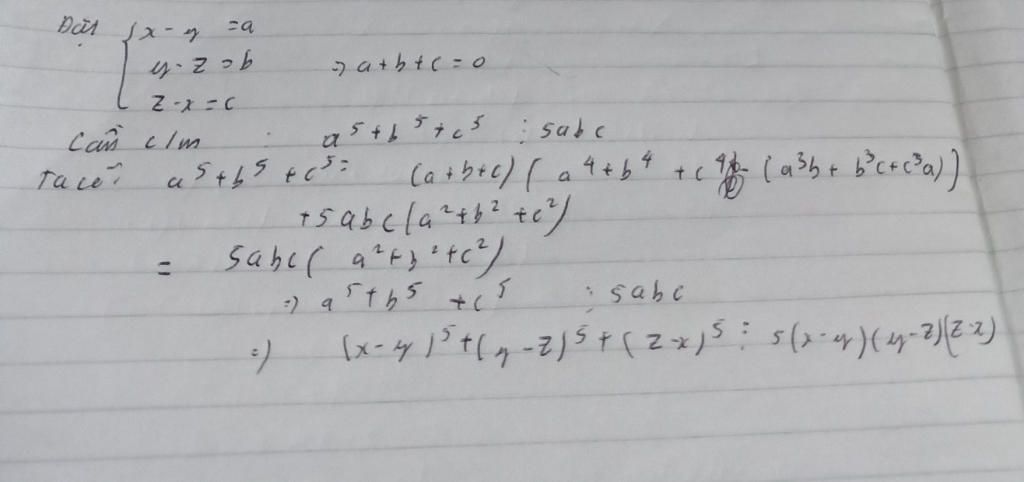 Đặt { x - y = a
y - z = b => a + b + c = 0
z - x = c
Cần c/m : a⁵ + b⁵ + c⁵ ⋮ 5abc
Ta có: a⁵ + b⁵ + c⁵ = (a + b + c) ( a⁴ + b⁴ + c⁴ - (a³b + b³c + c³a) )
+ 5abc (a² + b² + c²)
= 5abc ( a² + b² + c²)
=> a⁵ + b⁵ + c⁵ ⋮ 5abc
=> (x - y)⁵ + (y - z)⁵ + (z - x)⁵ ⋮ 5(x - y)(y - z)(z - x)